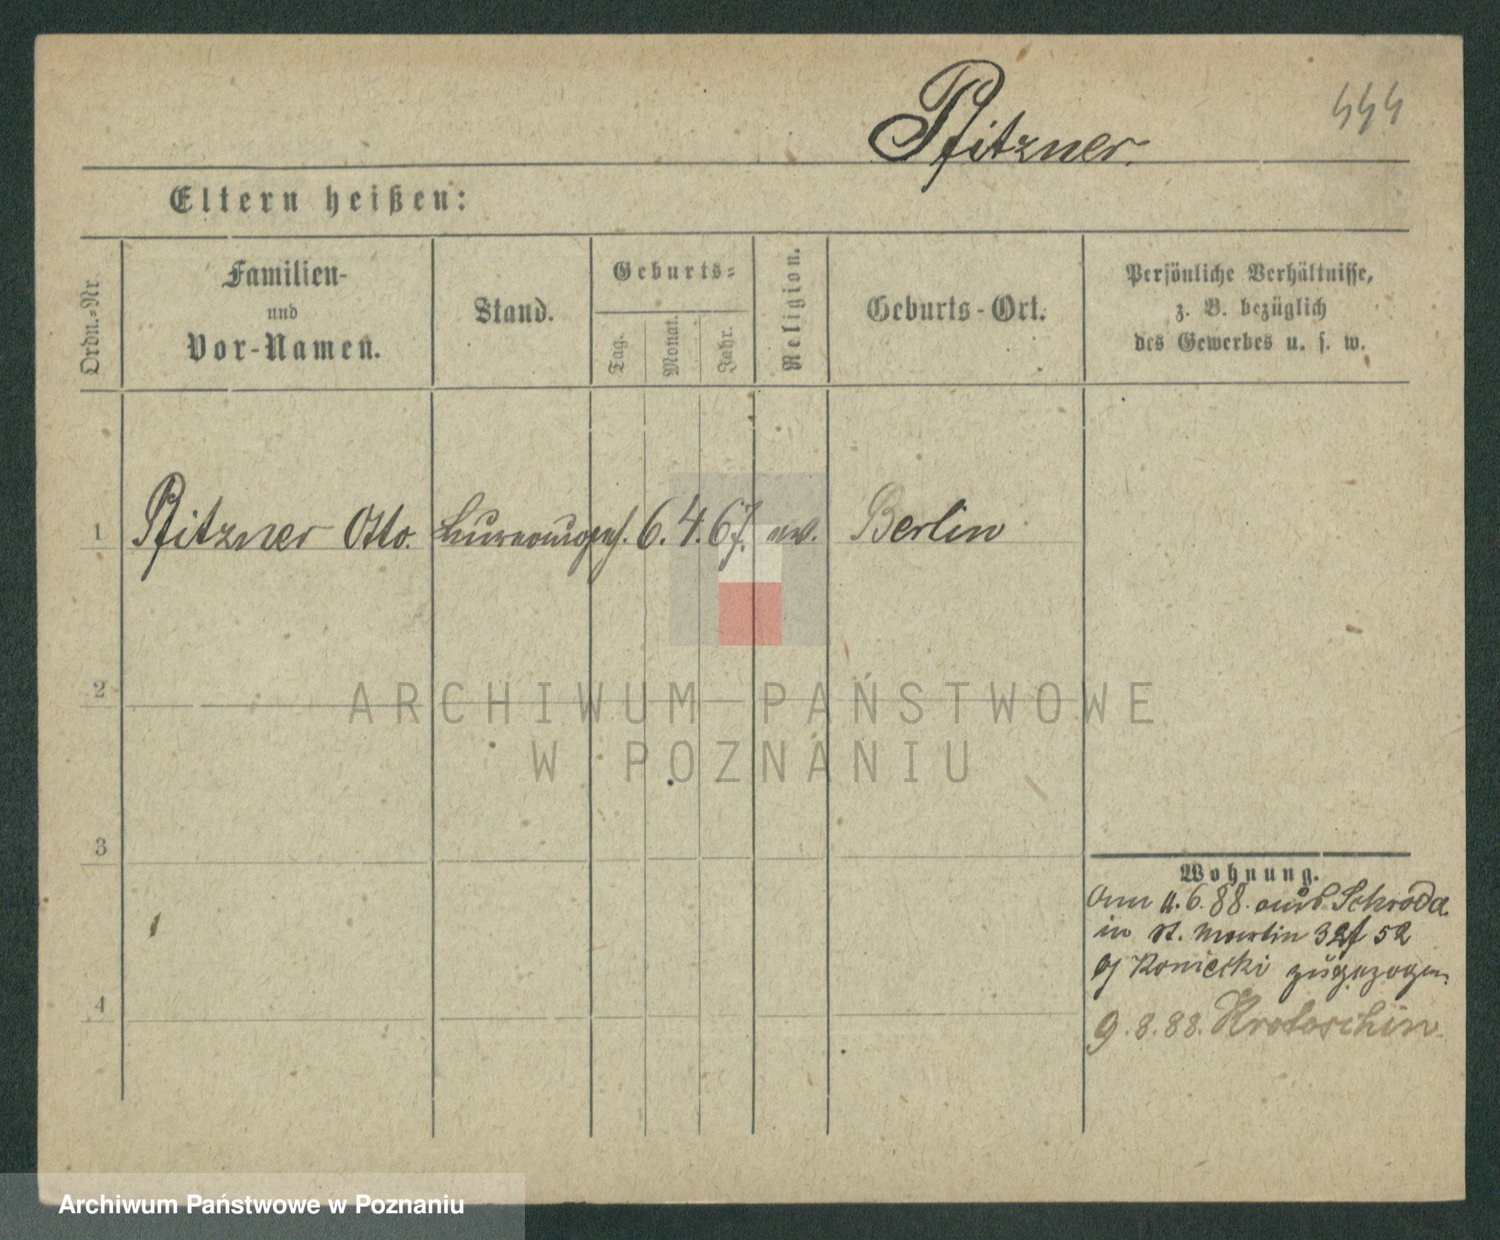 Pfitzner.
444
Eltern heißen:
Ordn.-Nr.
Familien-
und
Vor-Namen.
Stand.
Geburts-
Tag.
Monat.
Jahr.
Religion.
Geburts-Ort.
Persönliche Verhältnisse,
z. B. bezüglich
des Gewerbes u. s. w.
1 Pfitzner Otto. 6. 4. 67. ev. Berlin
2
3
4
Wohnung.
6. 88. aus Schroda
in St. Martin 52
Koniecki zugezogen
9. 8. 88. Krotoschin.
ARCHIWUM PAŃSTWOWE
W POZNANIU
Archiwum Państwowe w Poznaniu